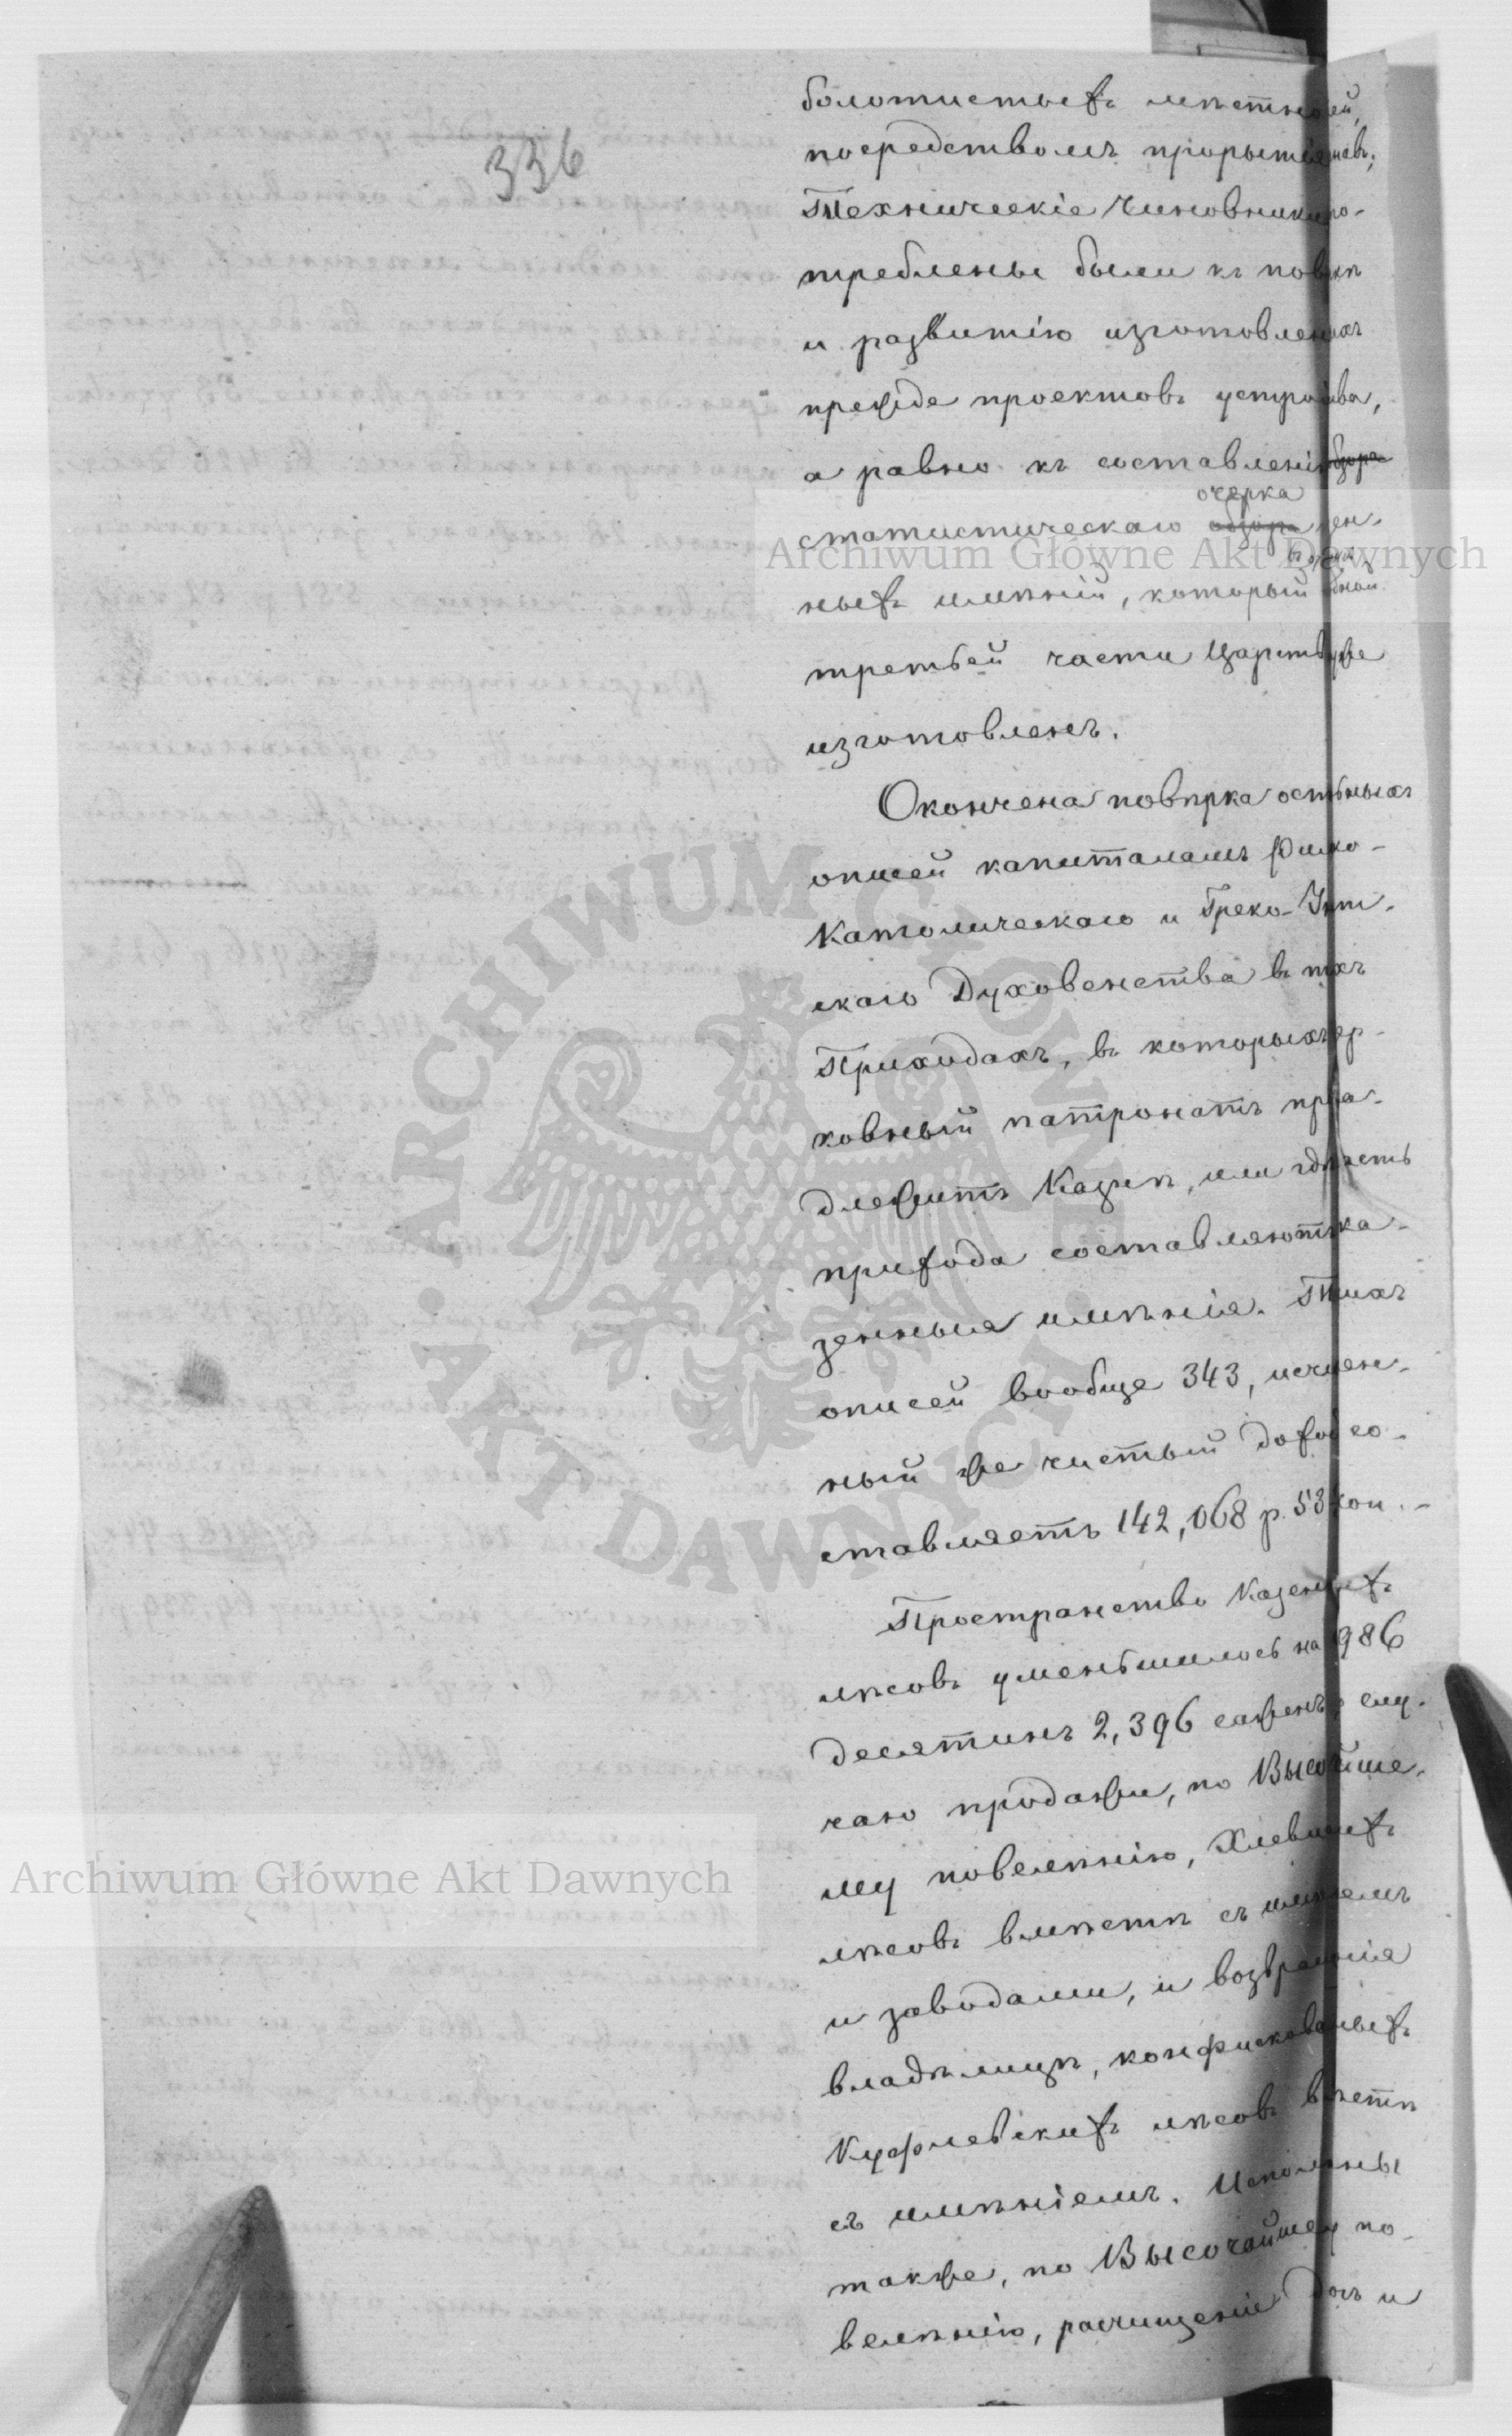 336
болотистыхъ мѣстностей,
посредствомъ прорытія
Техническіе Чиновники
треблены были къ
и развитію изготовленныхъ
прежде проектовъ устройства,
а равно къ составленію обзора
очерка
статистическаго обзора
ныхъ имѣній, который
третьей части Царства уже
изготовленъ.
Окончена повѣрка остальныхъ
описей капиталамъ Римо-
Католическаго и Греко-Уніт-
скаго Духовенства въ тѣхъ
Приходахъ, въ которыхъ цер-
ковный патронатъ прина-
длежитъ Казнѣ, или гдѣ часть
прихода составляютъ ка-
зенныя имѣнія. Такихъ
описей вообще 343, исчислен-
ный же чистый доходъ со-
ставляетъ 142,068 р. 53 коп.-
Пространство Казенныхъ
лѣсовъ уменьшилось на 986
десятинъ 2,396 саженъ, слу-
чаю продажи, по Высочайше-
му повелѣнію, Хлевискихъ
лѣсовъ вмѣстѣ съ имѣніемъ
и заводами, и возвращенія
владѣлицѣ, конфискованныхъ
Куфлевскихъ лѣсовъ вмѣстѣ
съ имѣніемъ. Исполнены
также, по Высочайшему по-
велѣнію, расчищенія и
Archiwum Główne Akt Dawnych
Archiwum Główne Akt Dawnych
ARCHIWUM GŁÓWNE
AKT DAWNYCH